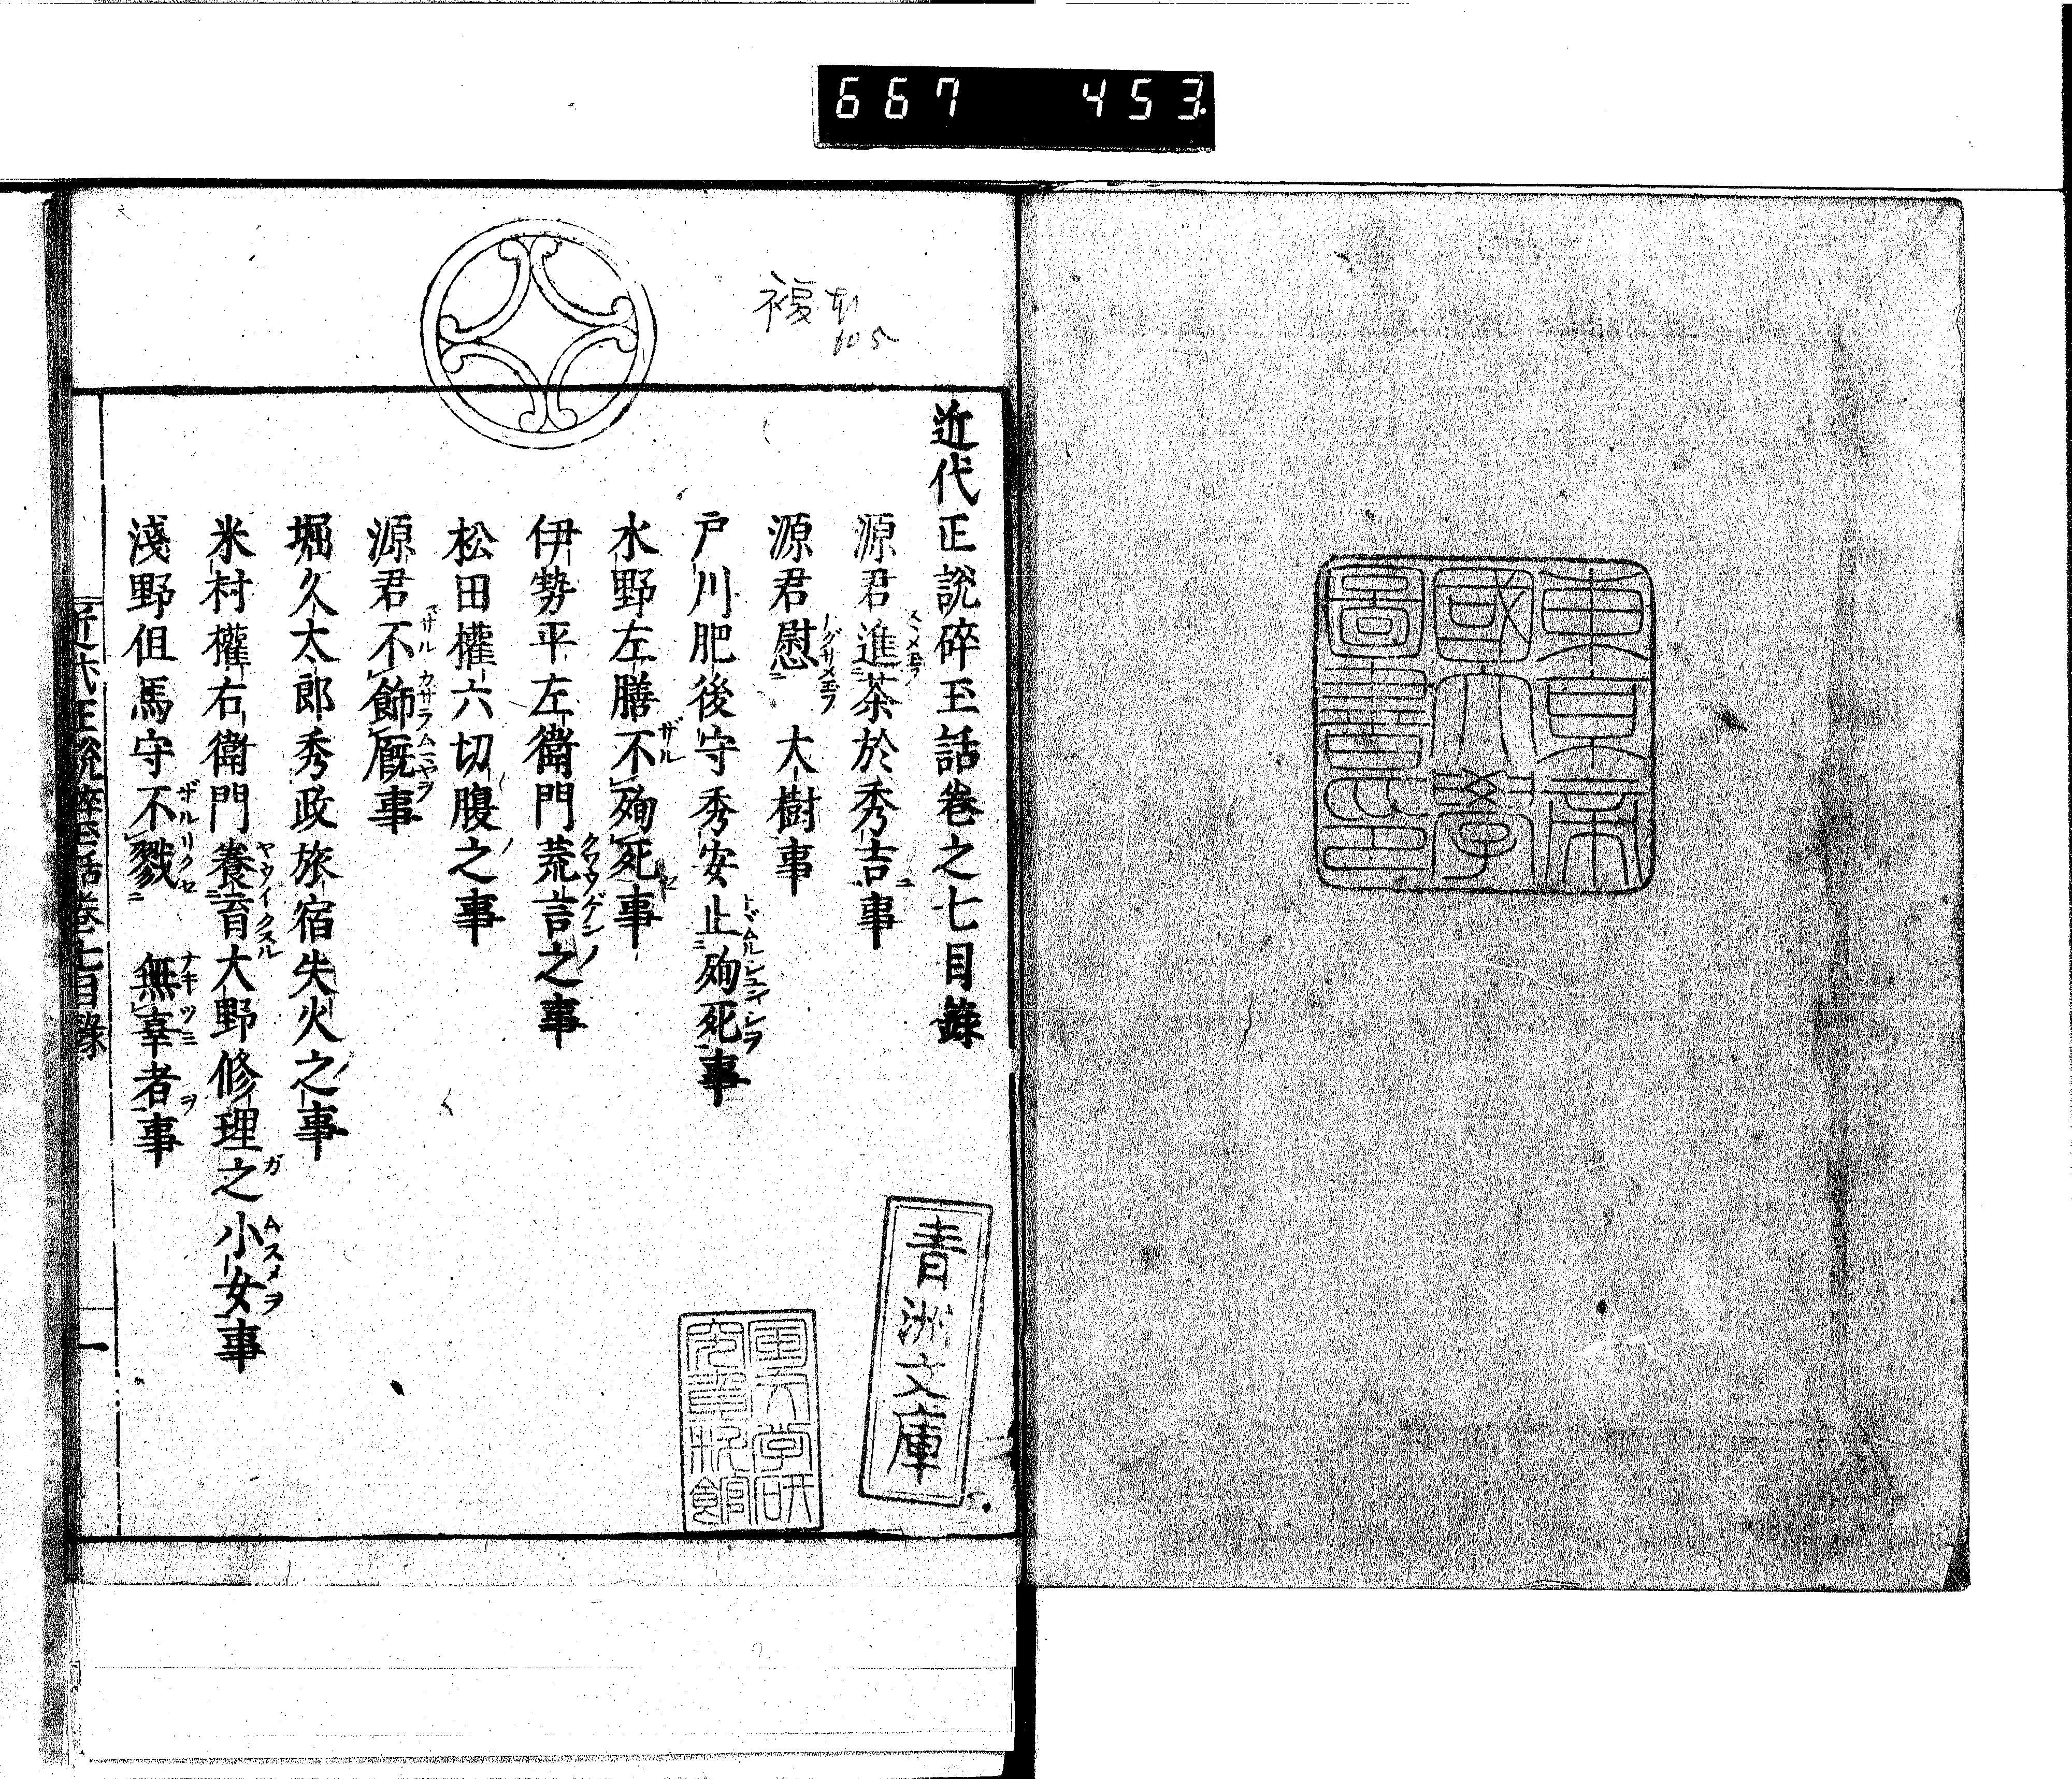 667 453
東京帝
國大學
圖書印
複本
605
近代正說碎玉話卷之七目錄
源君進茶於秀吉事
源君慰大樹事
戸川肥後守秀安止殉死事
水野左膳不殉死事
伊勢平左衞門荒言之事
松田權六切腹之事
源君不飾厩事
堀久太郎秀政旅宿失火之事
米村權右衞門養育大野修理之小女事
淺野但馬守不戮無辜者事
青洲文庫
近代正說碎玉話卷七目錄
一